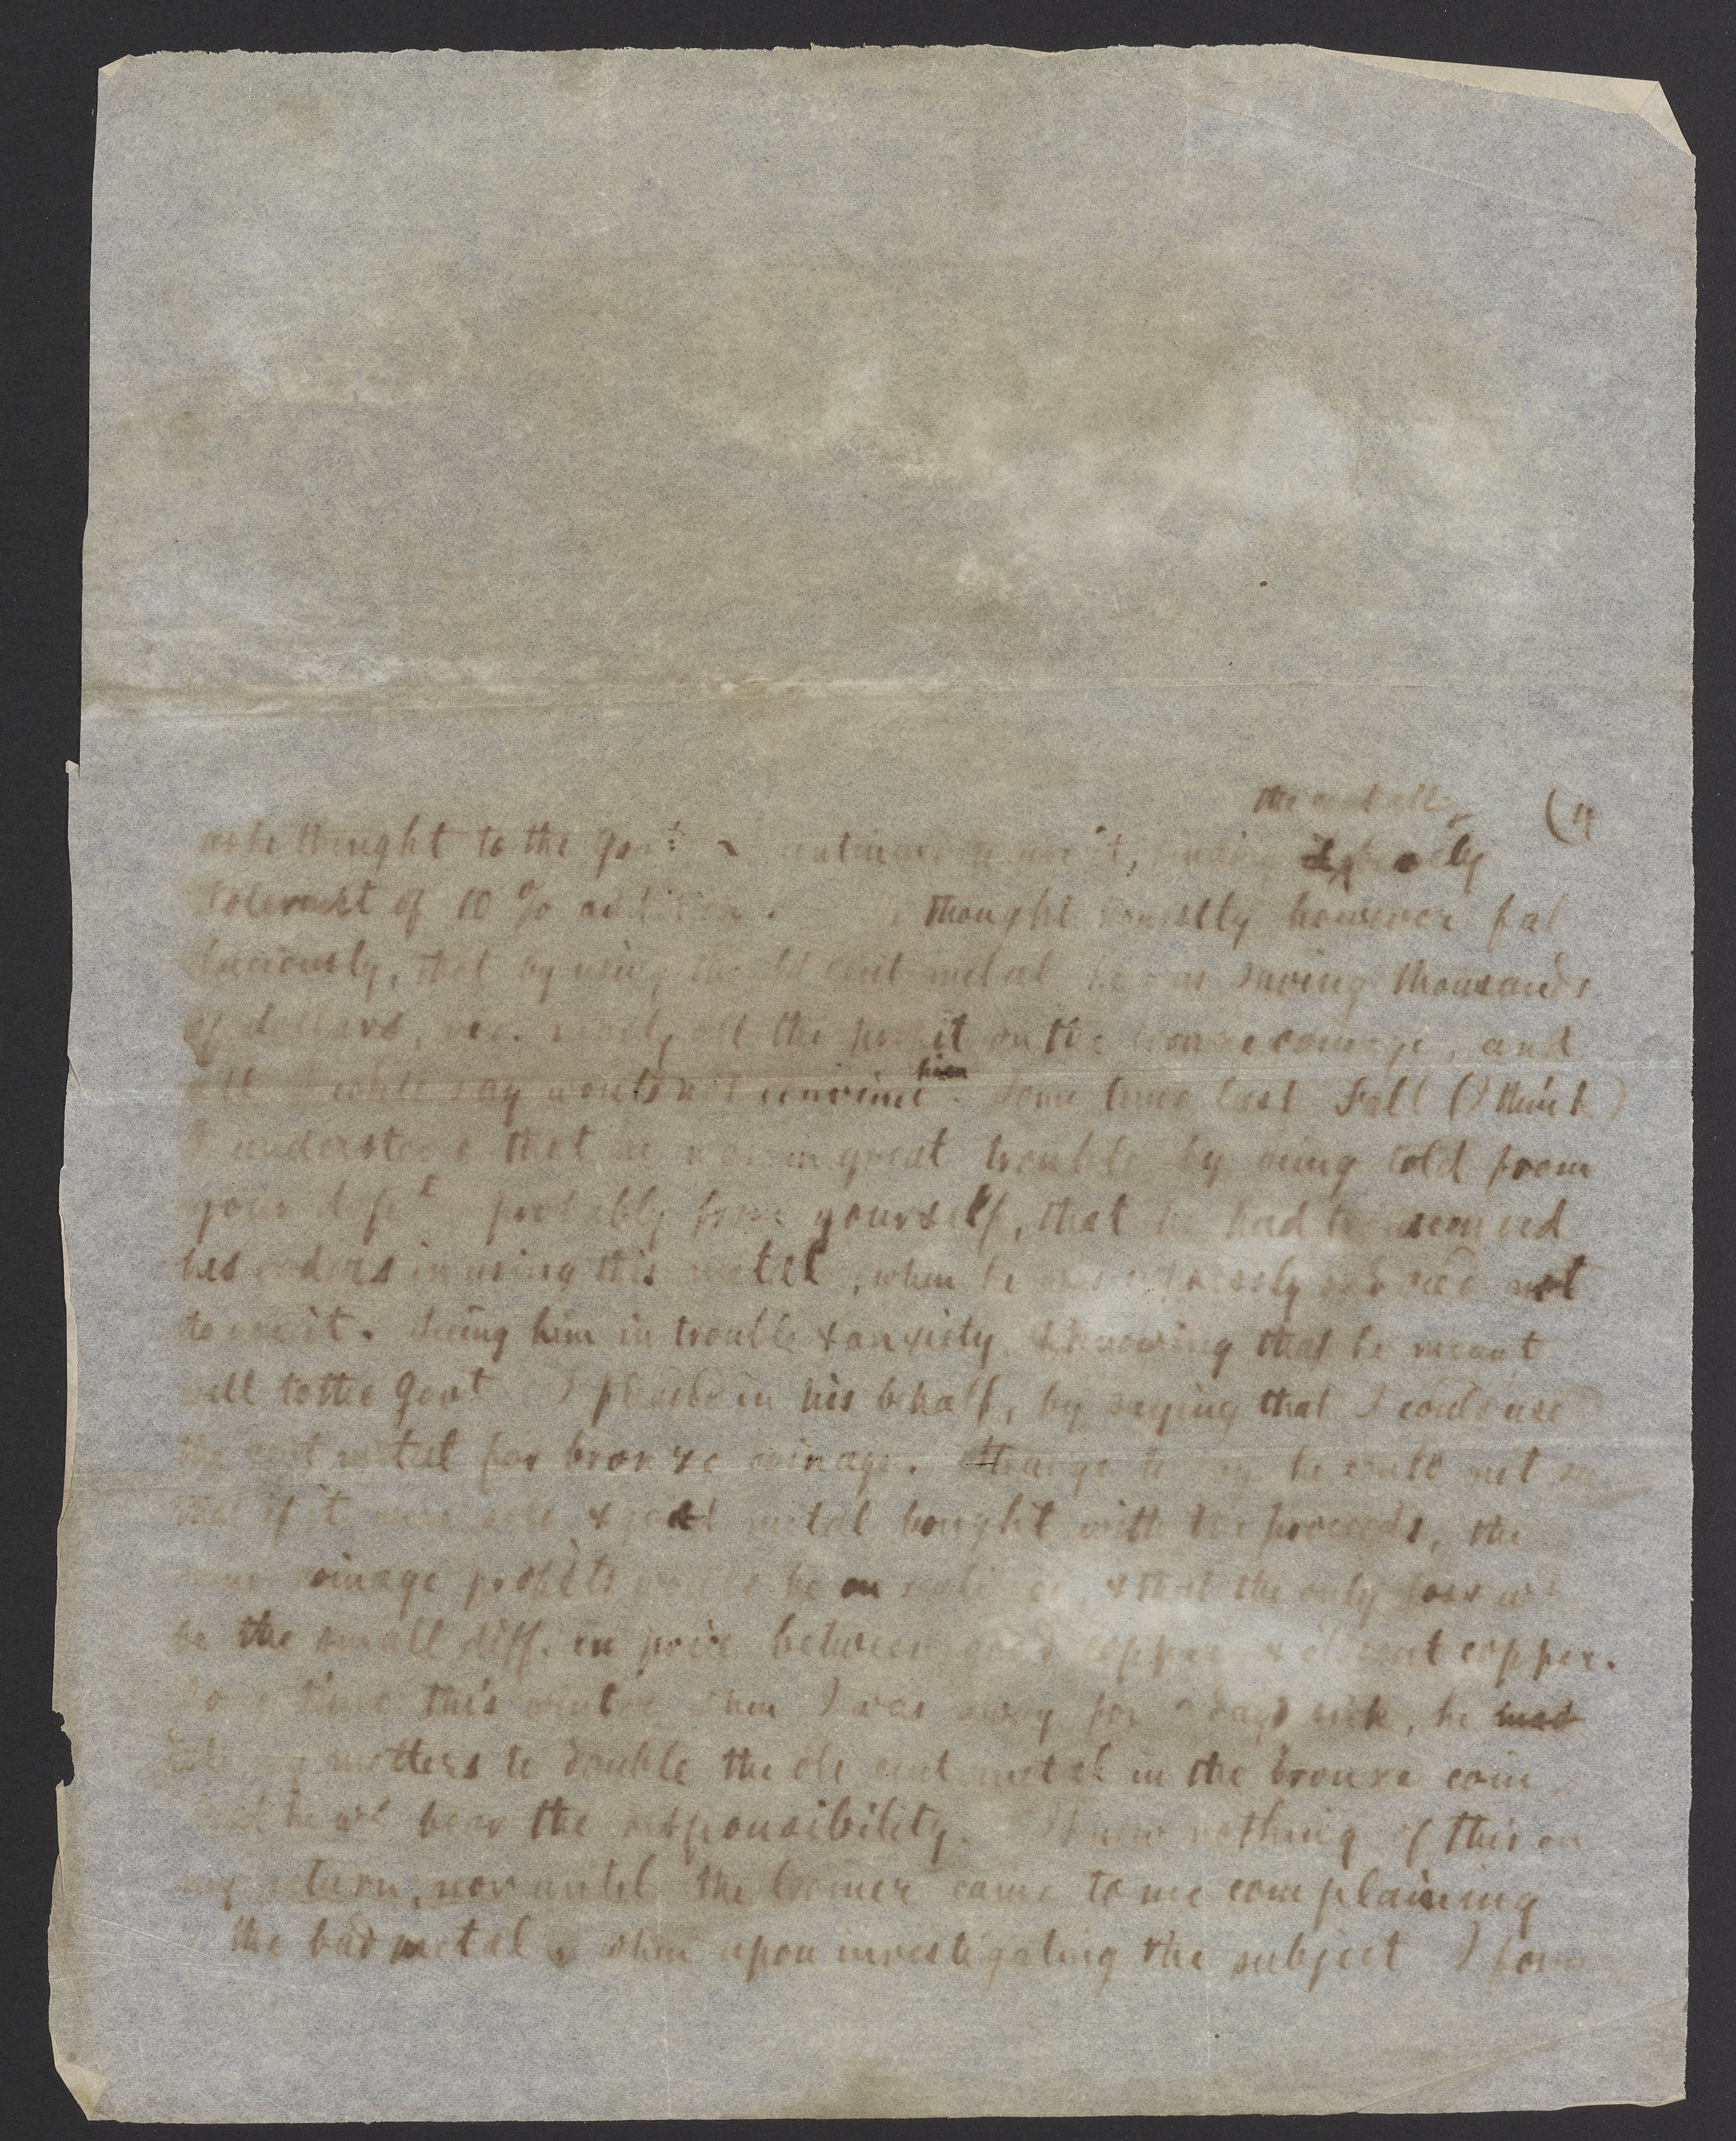 (4
the
as he thought to the Govt: & continued to use it, finding
tolerant of 10 % addition. He thought honestly however fal
laciously, that by using the old cent metal he was saving thousands
of dollars, viz. nearly all the profit on the bronze coinage, and
all I could say would not convince him. Some time last Fall (I think)
I understood that he was in great trouble by being told from
your dept probably from yourself, that he had
his orders in using this metal, when he was expressly not
to use it. Seeing him in trouble & anxiety & knowing that he meant
well to the Govt I pleaded in his behalf, by saying that I could use
the cent metal for bronze coinage. Strange to say he could not see
that if it were sold & good metal bought with the proceeds, the
same coinage profits would be realized, & that the only loss wd
be the small diff. in price between good copper & old cent copper.
Some time this winter when I was away for days sick, he
told my melters to double the old cent metal in the bronze coin,
that he wd bear the responsibility. I knew nothing of this on
my return, nor until the Coiner came to me complaining
of the bad metal & when upon investigating the subject I found